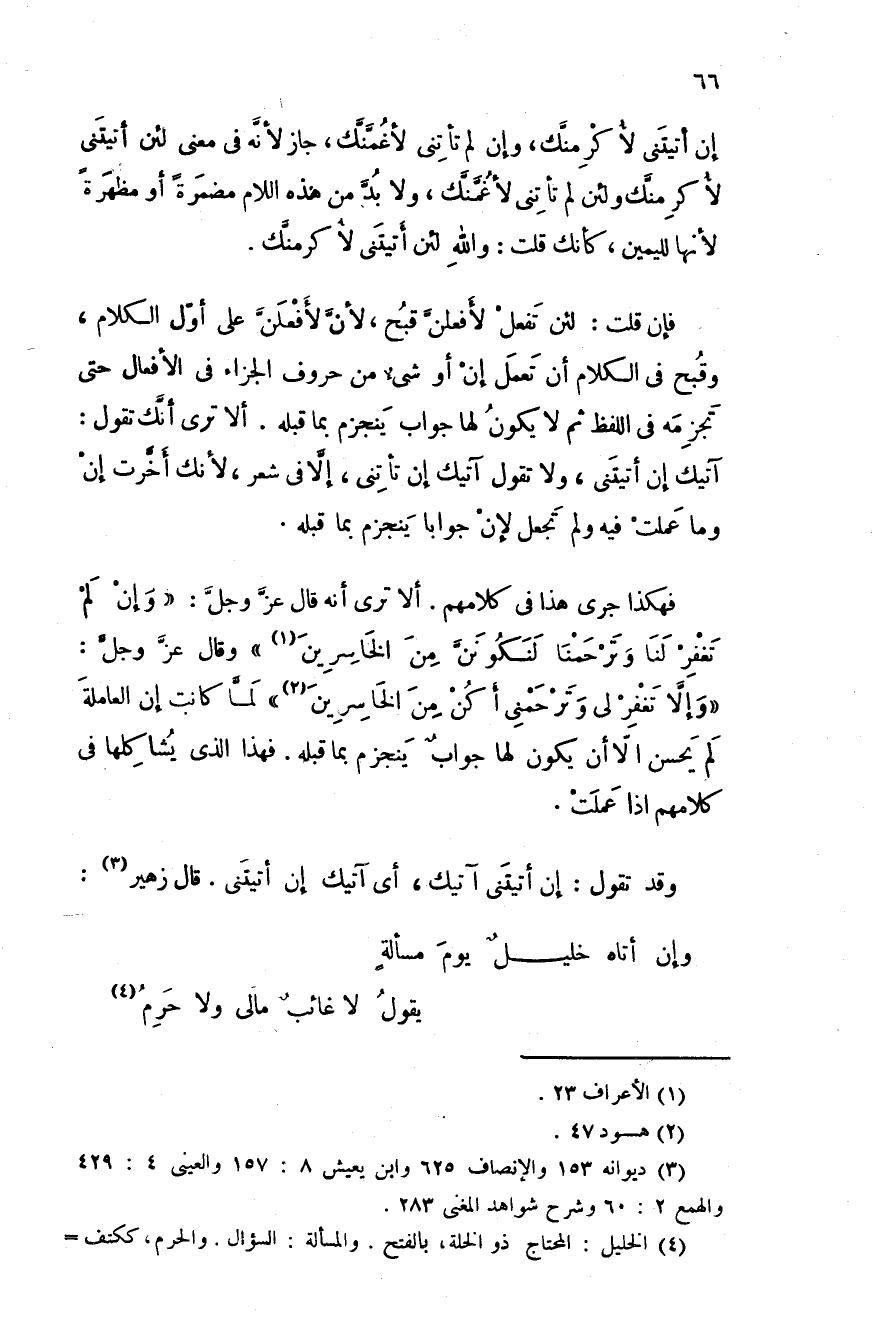 ٦٦
إن أتيتَنى لأُكْرِمنَّك، وإن لم تأتِنى لأغُمَّنَّك، جاز لأنَّه فى معنى لئن أتيتَنى
لأُكرِمنَّك ولئن لم تأتِنى لأغُمَّنَّك، ولا بُدَّ من هذه اللام مضمَرةً أو مظهَرةً
لأنها لليمين، كأنك قلت : واللهِ لئن أتيتَنى لأُكرمنَّك .
فإن قلت : لئن تَفعلْ لأفعلنَّ قبُح، لأنَّ لأَفْعلَنَّ على أوّل الكلام ،
وقُبح فى الكلام أن تَعمَل إنْ أو شىء من حروف الجزاء فى الأفعال حتى
تَجزِمَه فى اللفظ ثم لا يكونُ لها جواب يَنجزم بما قبله . ألا ترى أنَّك تقول :
آتيك إن أتيتَنى ، ولا تقول آتيك إن تأتِنى ، إلَّا فى شعر ، لأنك أخَّرت إنْ
وما عَملتْ فيه ولم تَجعل لإنْ جوابا يَنجزم بما قبله .
فهكذا جرى هذا فى كلامهم . ألا ترى أنه قال عزَّ وجلَّ : « وَإنْ لَمْ
تَغفِرْ لَنَا وَتَرْحَمْنَا لَنَكُونَنَّ مِنَ الخَاسِرِينَ(١) » وقال عزَّ وجلَّ :
« وَإلَّا تَغْفِرْ لى وَتَرْحَمْنِى أَكُنْ مِنَ الخَاسِرِينَ(٢)» لَمَّا كانت إن العاملةَ
لم يَحسن الّا أن يكون لها جوابٌ يَنجزم بما قبله . فهذا الذى يُشاكِلها فى
كلامهم اذا عَملَتْ .
وقد تقول : إن أتيتَنى آتيك ، أى آتيك إن أتيتَنى . قال زهير(٣) :
وإن أتاه خليـــلٌ يومَ مسألةٍ
يقولُ لا غائبٌ مالى ولا حَرِمُ(٤)
(١) الأعراف ٢٣ .
(٢) هــود ٤٧ .
(٣) ديوانه ١٥٣ والإنصاف ٦٢٥ وابن يعيش ٨ : ١٥٧ والعينى ٤ : ٤٢٩
والهمع ٢ : ٦٠ وشرح شواهد المغنى ٢٨٣ .
(٤) الخليل : المحتاج ذو الخلة، بالفتح . والمسألة : السؤال . والحرم، ككتف =